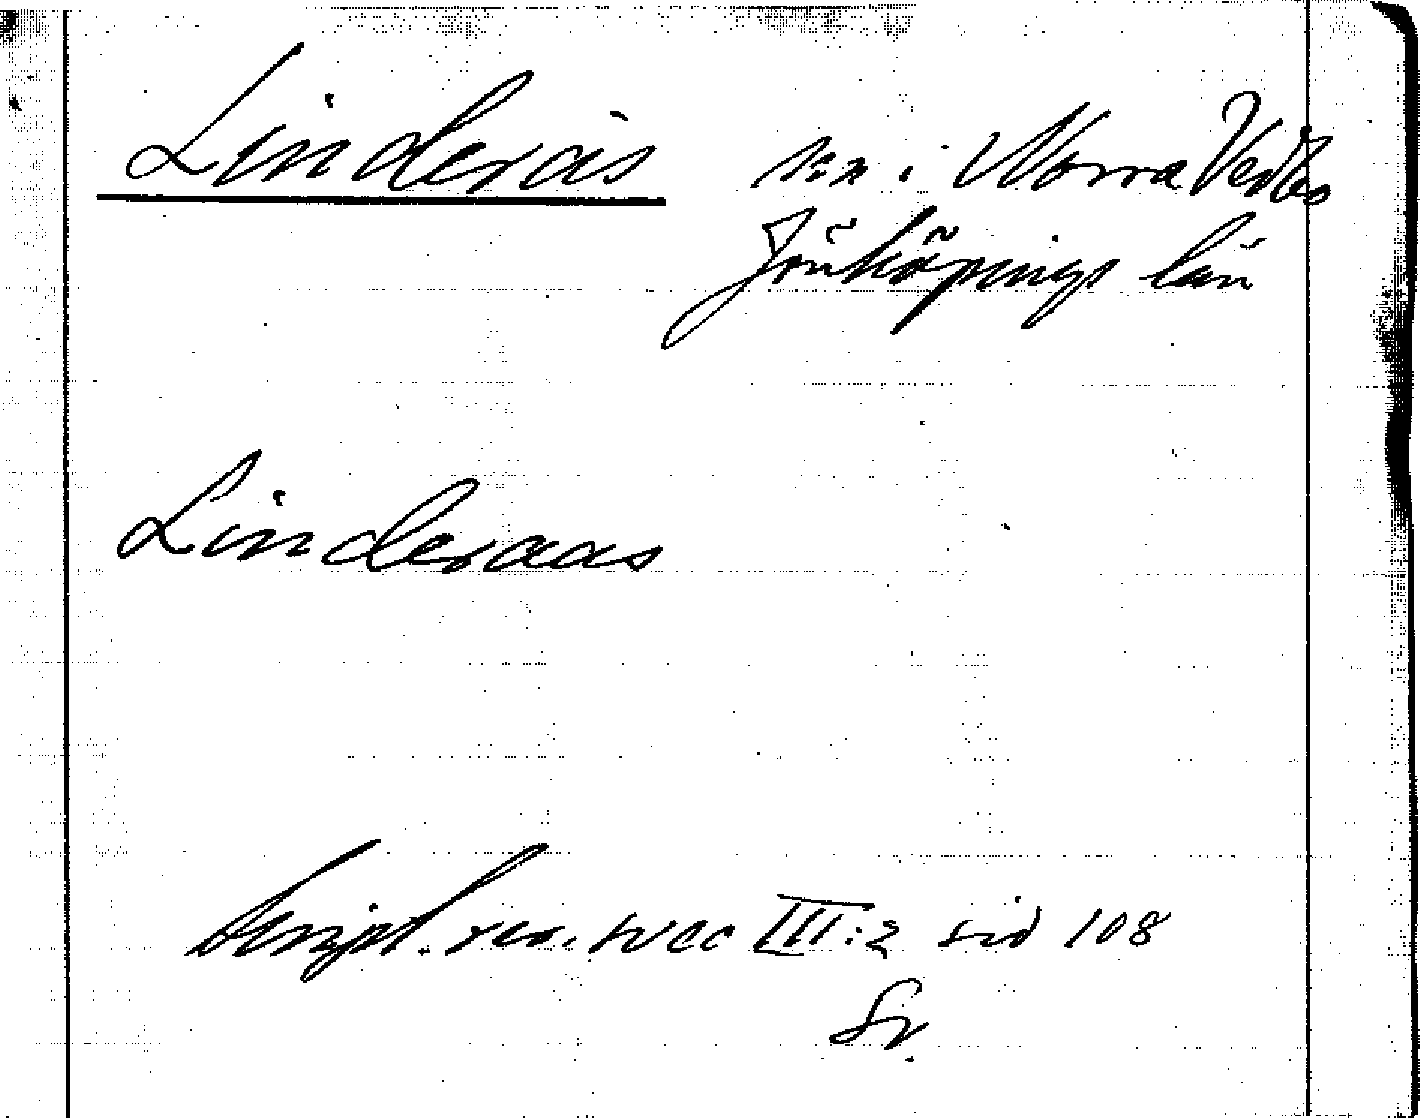 Linderås sn i Norra Vedbo
Jönköpings län
Linderaas
Script. rer. svec III:2 sid 108
Sv.